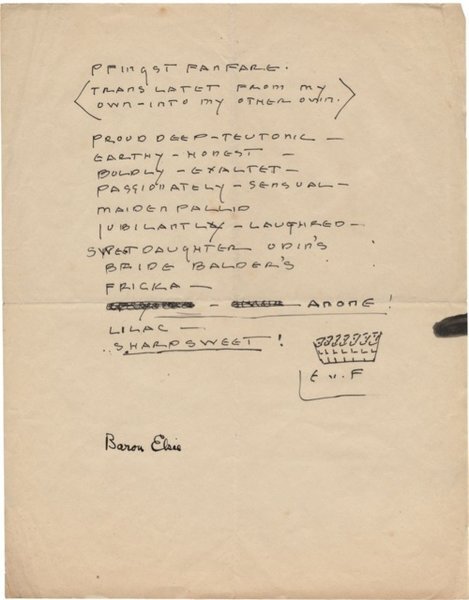 PFINGST FANFARE.
TRANSLATET FROM MY
OWN-INTO MY OTHER OWN.
PROUD DEEP-TEUTONIC —
EARTHY - HONEST —
BOLDLY - EXALTET —
PASSIONATELY - SENSUAL —
MAIDEN PALLID
JUBILANTLY - LAUGHRED —
SWEET DAUGHTER ODIN'S
BRIDE BALDER'S
FRICKA —
— ANONE!
LILAC —
SHARPSWEET!
E v. F
Baron Elsie